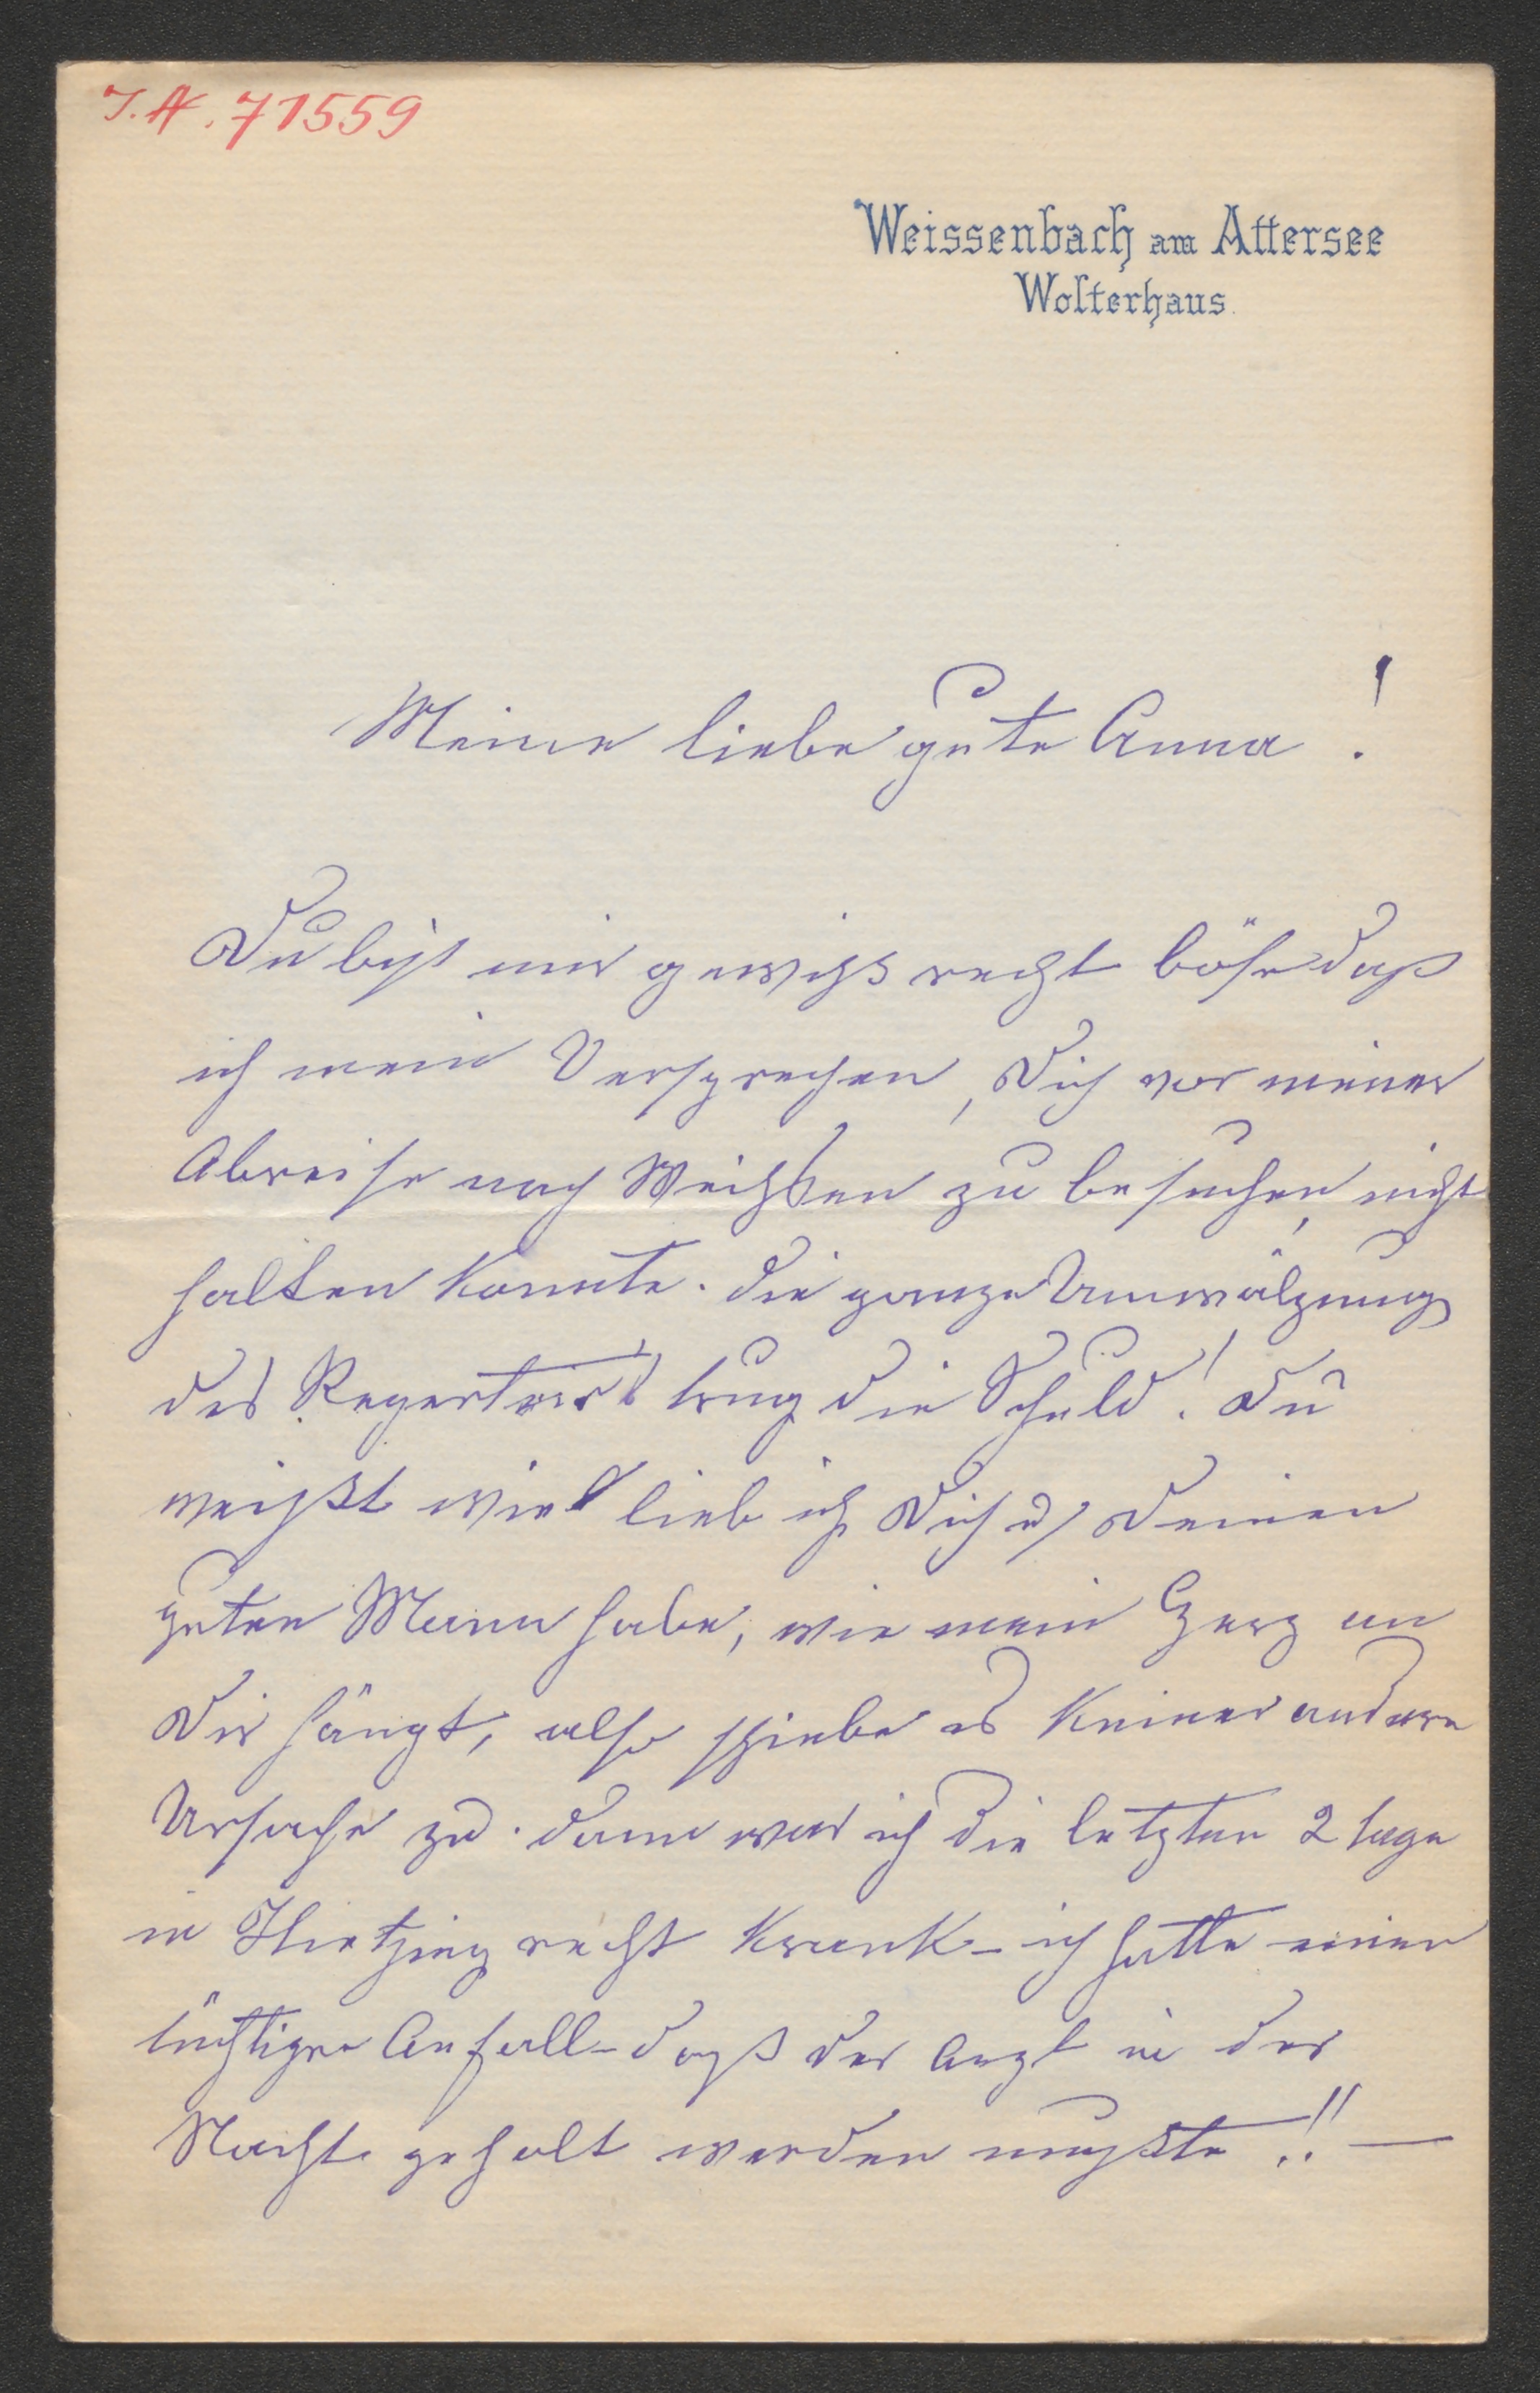 I.N. 71559
Weissenbach am Attersee
Wolterhaus.
Meine liebe gute Anna!
Du bist mir gewiss recht böse daß
ich mein Versprechen, Dich vor meiner
Abreise nach zu besuchen, nicht
halten konnte. Die ganze Umwälzung
des Repertoirs trug die Schuld! Du
weißt wie lieb ich Dich u Deinen
guten Mann habe, wie mein Herz an
Dir hängt, also schiebe es keiner andern
Ursache zu. Dann war ich die letzten 2 Tage
in Hietzing recht krank – ich hatte einen
tüchtigen Anfall – daß der Arzt in der
Nacht geholt werden mußte!! —